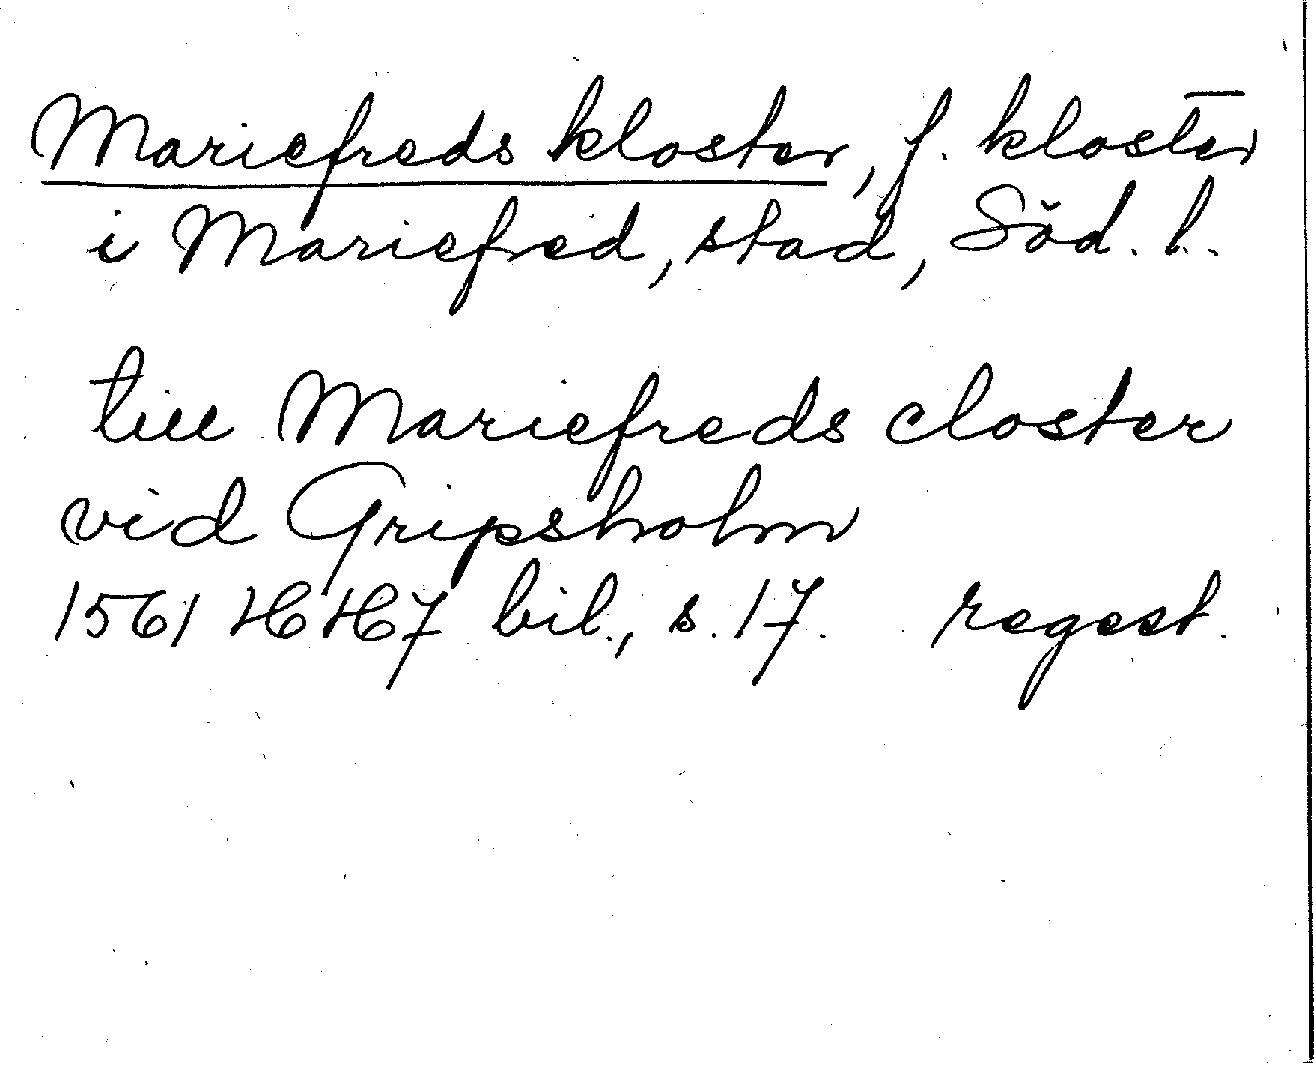 Mariefreds kloster, f. kloster
i Mariefred, stad, Söd. l.
till Mariefreds closter
vid Gripsholm
1561 HH7 bil., s. 17. regest.